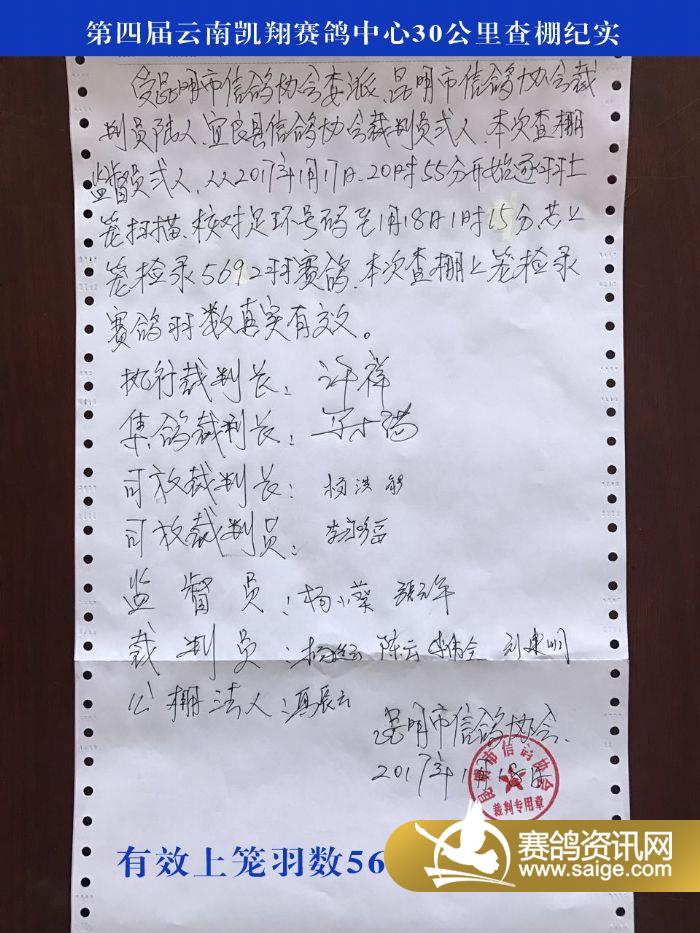 第四届云南凯翔赛鸽中心30公里查棚纪实
受昆明市信鸽协会委派、昆明市信鸽协会裁
判员陆人、宜良县信鸽协会裁判员弍人、本次查棚
监督员弍人,从2017年1月17日.20时55分开始逐羽上
笼扫描、核对足环号码至1月18日1时15分,共上
笼检录5692羽赛鸽.本次查棚上笼检录
赛鸽羽数真实有效。
执行裁判长:许祥
集鸽裁判长:
司放裁判长:杨洪
司放裁判员:
监督员:杨小蔡
裁判员:陈云 刘建明
公棚法人:冯辰云
昆明市信鸽协会.
2017年1月18日
昆明市信鸽协会
裁判专用章
有效上笼羽数56
赛鸽资讯网
www.saige.com